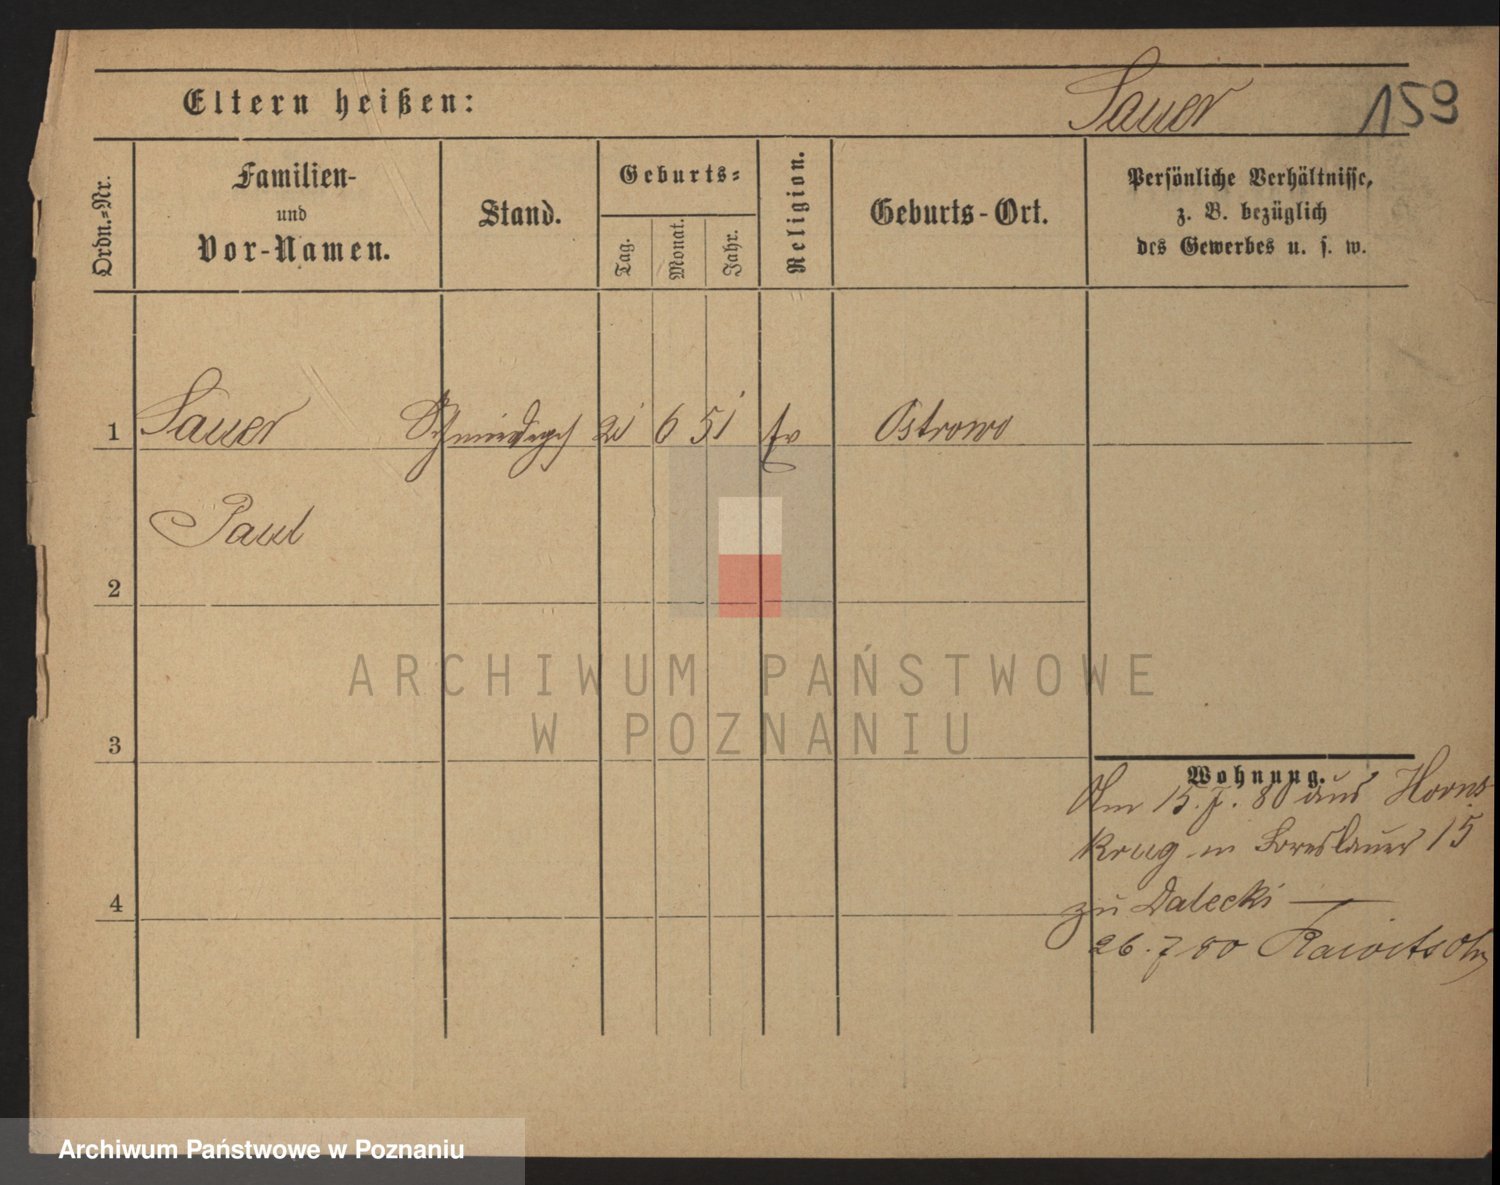 Eltern heißen:
Sauer
159
Ordn.=Nr.
Familien-
und
Vor-Namen.
Stand.
Geburts=
Tag.
Monat.
Jahr.
Religion.
Geburts-Ort.
Persönliche Verhältnisse,
z. B. bezüglich
des Gewerbes u. s. w.
1 Sauer Schmiedeges 21 6 51 Ev Ostrowo
Paul
2
ARCHIWUM PAŃSTWOWE
W POZNANIU
3
Wohnung.
15. 7. 80 aus Horns
krug in Breslauer 15
zu Dalecki —
4
26. 7 80 Rawitsch
Archiwum Państwowe w Poznaniu